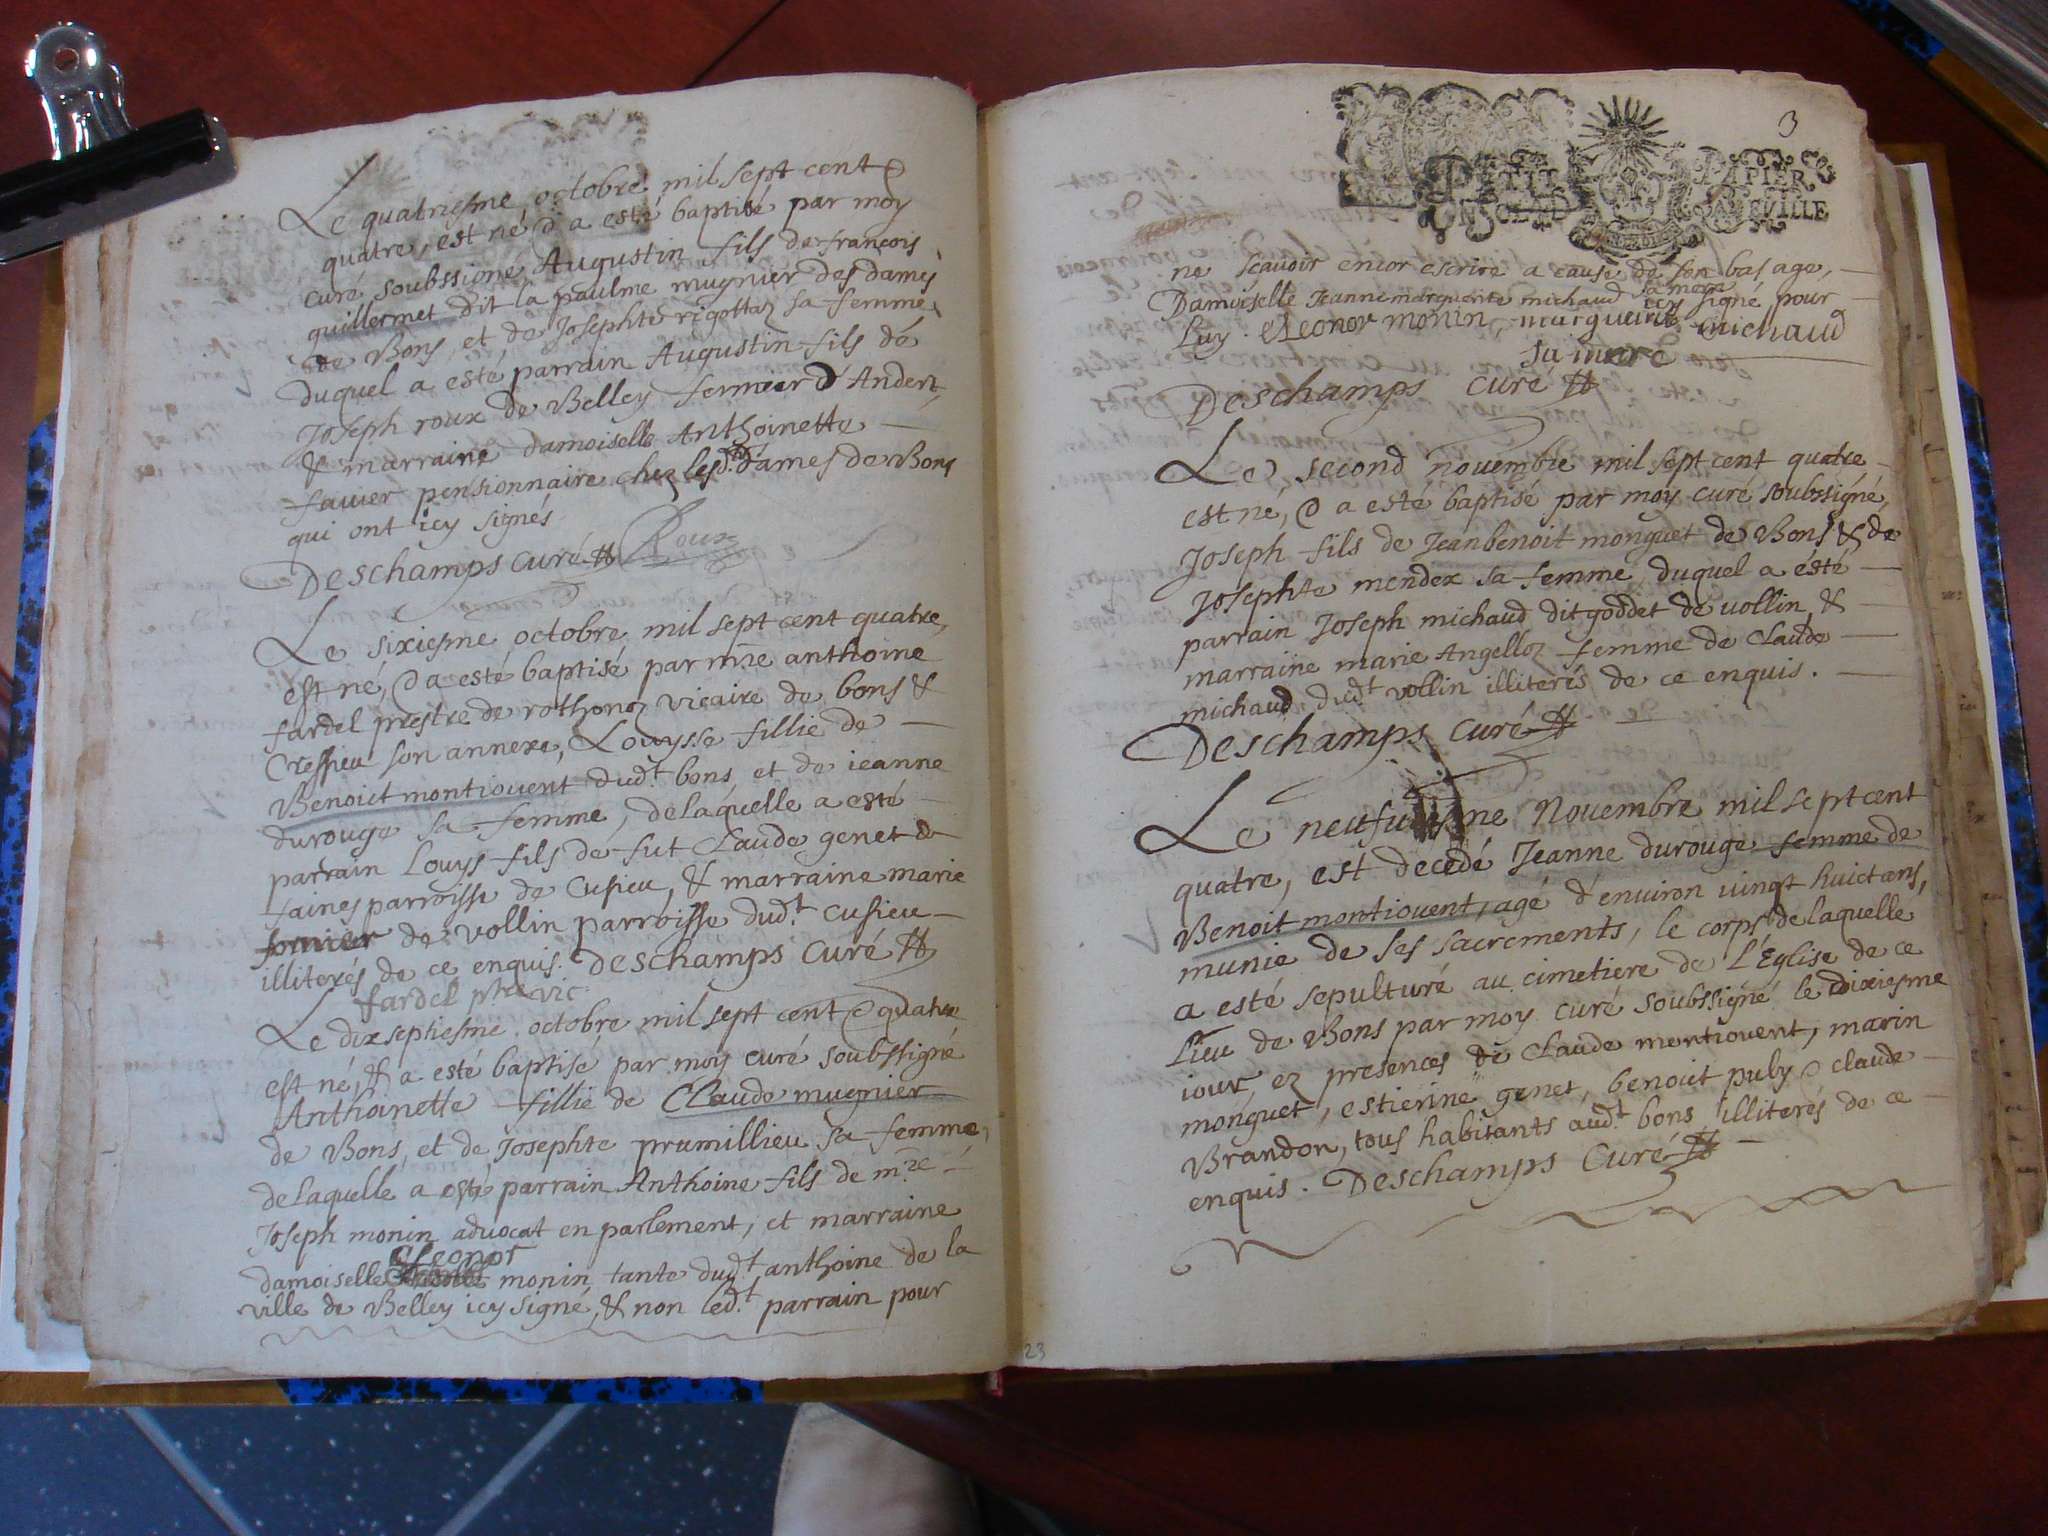 Le quatriesme octobre mil sept cent
quatre, est né & a esté baptisé par moy
curé soubssigné Augustin fils de françois
guillermet dit la paulme mugnier des dames
de Bons, et de Josephte rigottaz sa femme
duquel a esté parrain Augustin fils de
Joseph roux de Belley fermier d'Andert,
& marraine damoiselle Anthoinette
favier pensionnaire chez lesd. dames de Bons
qui ont icy signés
Deschamps curé Roux
Le sixiesme octobre mil sept cent quatre,
est né, & a esté baptisé par mre anthoine
fardel prestre de rothonoz vicaire de bons &
Cressieu son annexe, Louysse fillie de
Benoict montiouent dudt bons, et de ieanne
durouge sa femme, de laquelle a esté
parrain Louys fils de fut Claude genet de
faines parroisse de Cusieu, & marraine marie
fornier de vollin parroisse dudt cusieu
illiterés de ce enquis. Deschamps Curé
fardel ptre vic
Le dixseptiesme octobre mil sept cent & quatre
est né, & a esté baptisé par moy curé soubssigné
Anthoinette fillie de Claude mugnier
de Bons, et de Josephte prumillieu sa femme,
de laquelle a esté parrain Anthoine fils de mre
Joseph monin advocat en parlement, et marraine
Eleonor
damoiselle monin tante dudt anthoine de la
ville de Belley icy signé, & non ledt parrain pour
23
3
PETIT PAPIER
ne sçavoir encor escrire a cause de son bas age,
sa mere
Damoiselle Jeanne marguerite michaud icy signé pour
Luy. Eleonor monin, marguerite michaud
sa mere
Deschamps curé
Le second novembre mil sept cent quatre
est né, & a esté baptisé par moy curé soubssigné,
Joseph fils de Jeanbenoit monguet de Bons & de
Josephte mendex sa femme, duquel a ésté
parrain Joseph michaud dit goddet de vollin, &
marraine marie Angelloz femme de Claude
michaud dudt vollin illiterés de ce enquis.
Deschamps curé
Le neufuiesme Novembre mil sept cent
quatre, est decedé Jeanne durouge femme de
Benoit montiouent, agé d'environ vingt huict ans,
munie de ses sacrements, le corps de laquelle
a esté sepulturé au cimetiere de L'Eglise de ce
Lieu de Bons par moy curé soubssigné le dixiesme
iour ez presences de Claude montiouent, marin
monguet, estienne genet, benoict puby & claude
Brandon, tous habitants audt bons illiterés de ce
enquis. Deschamps Curé